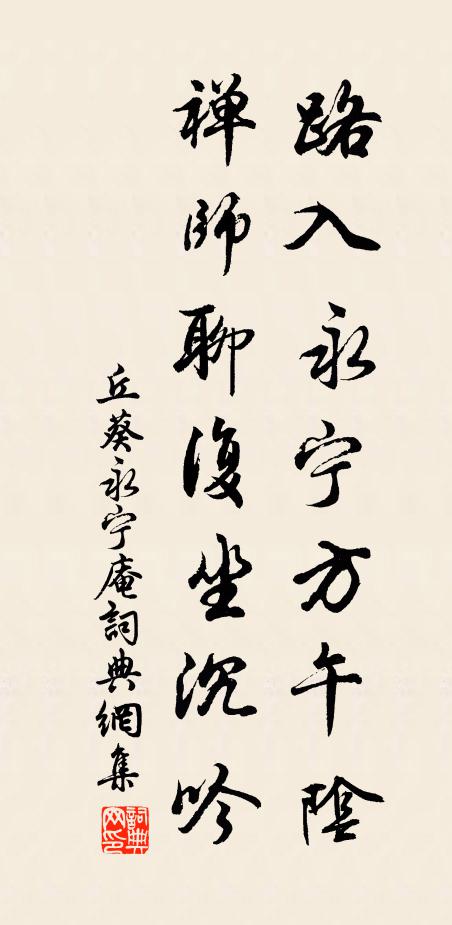 路入永宁方午陰
禅師聊復坐沉吟
丘葵永宁庵詞典網集
詞典网印